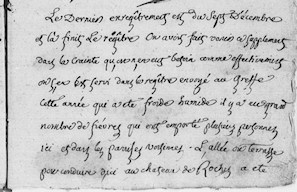 Le Dernier enregistrement est du Sept Décembre
et là finit Le registre On avoit fait venir ce supplement
dans la crainte qu'on en eut besoin comme effectivement
on s'en est servi dans le registre envoyé au Greffe
cette année qui a été froide humide il y a eu grand
nombre de fièvres qui ont emporté plusieurs personnes
ici et dans les paroisses voisines - L'allée ou terrasse
pour conduire au chateau de Roches a été